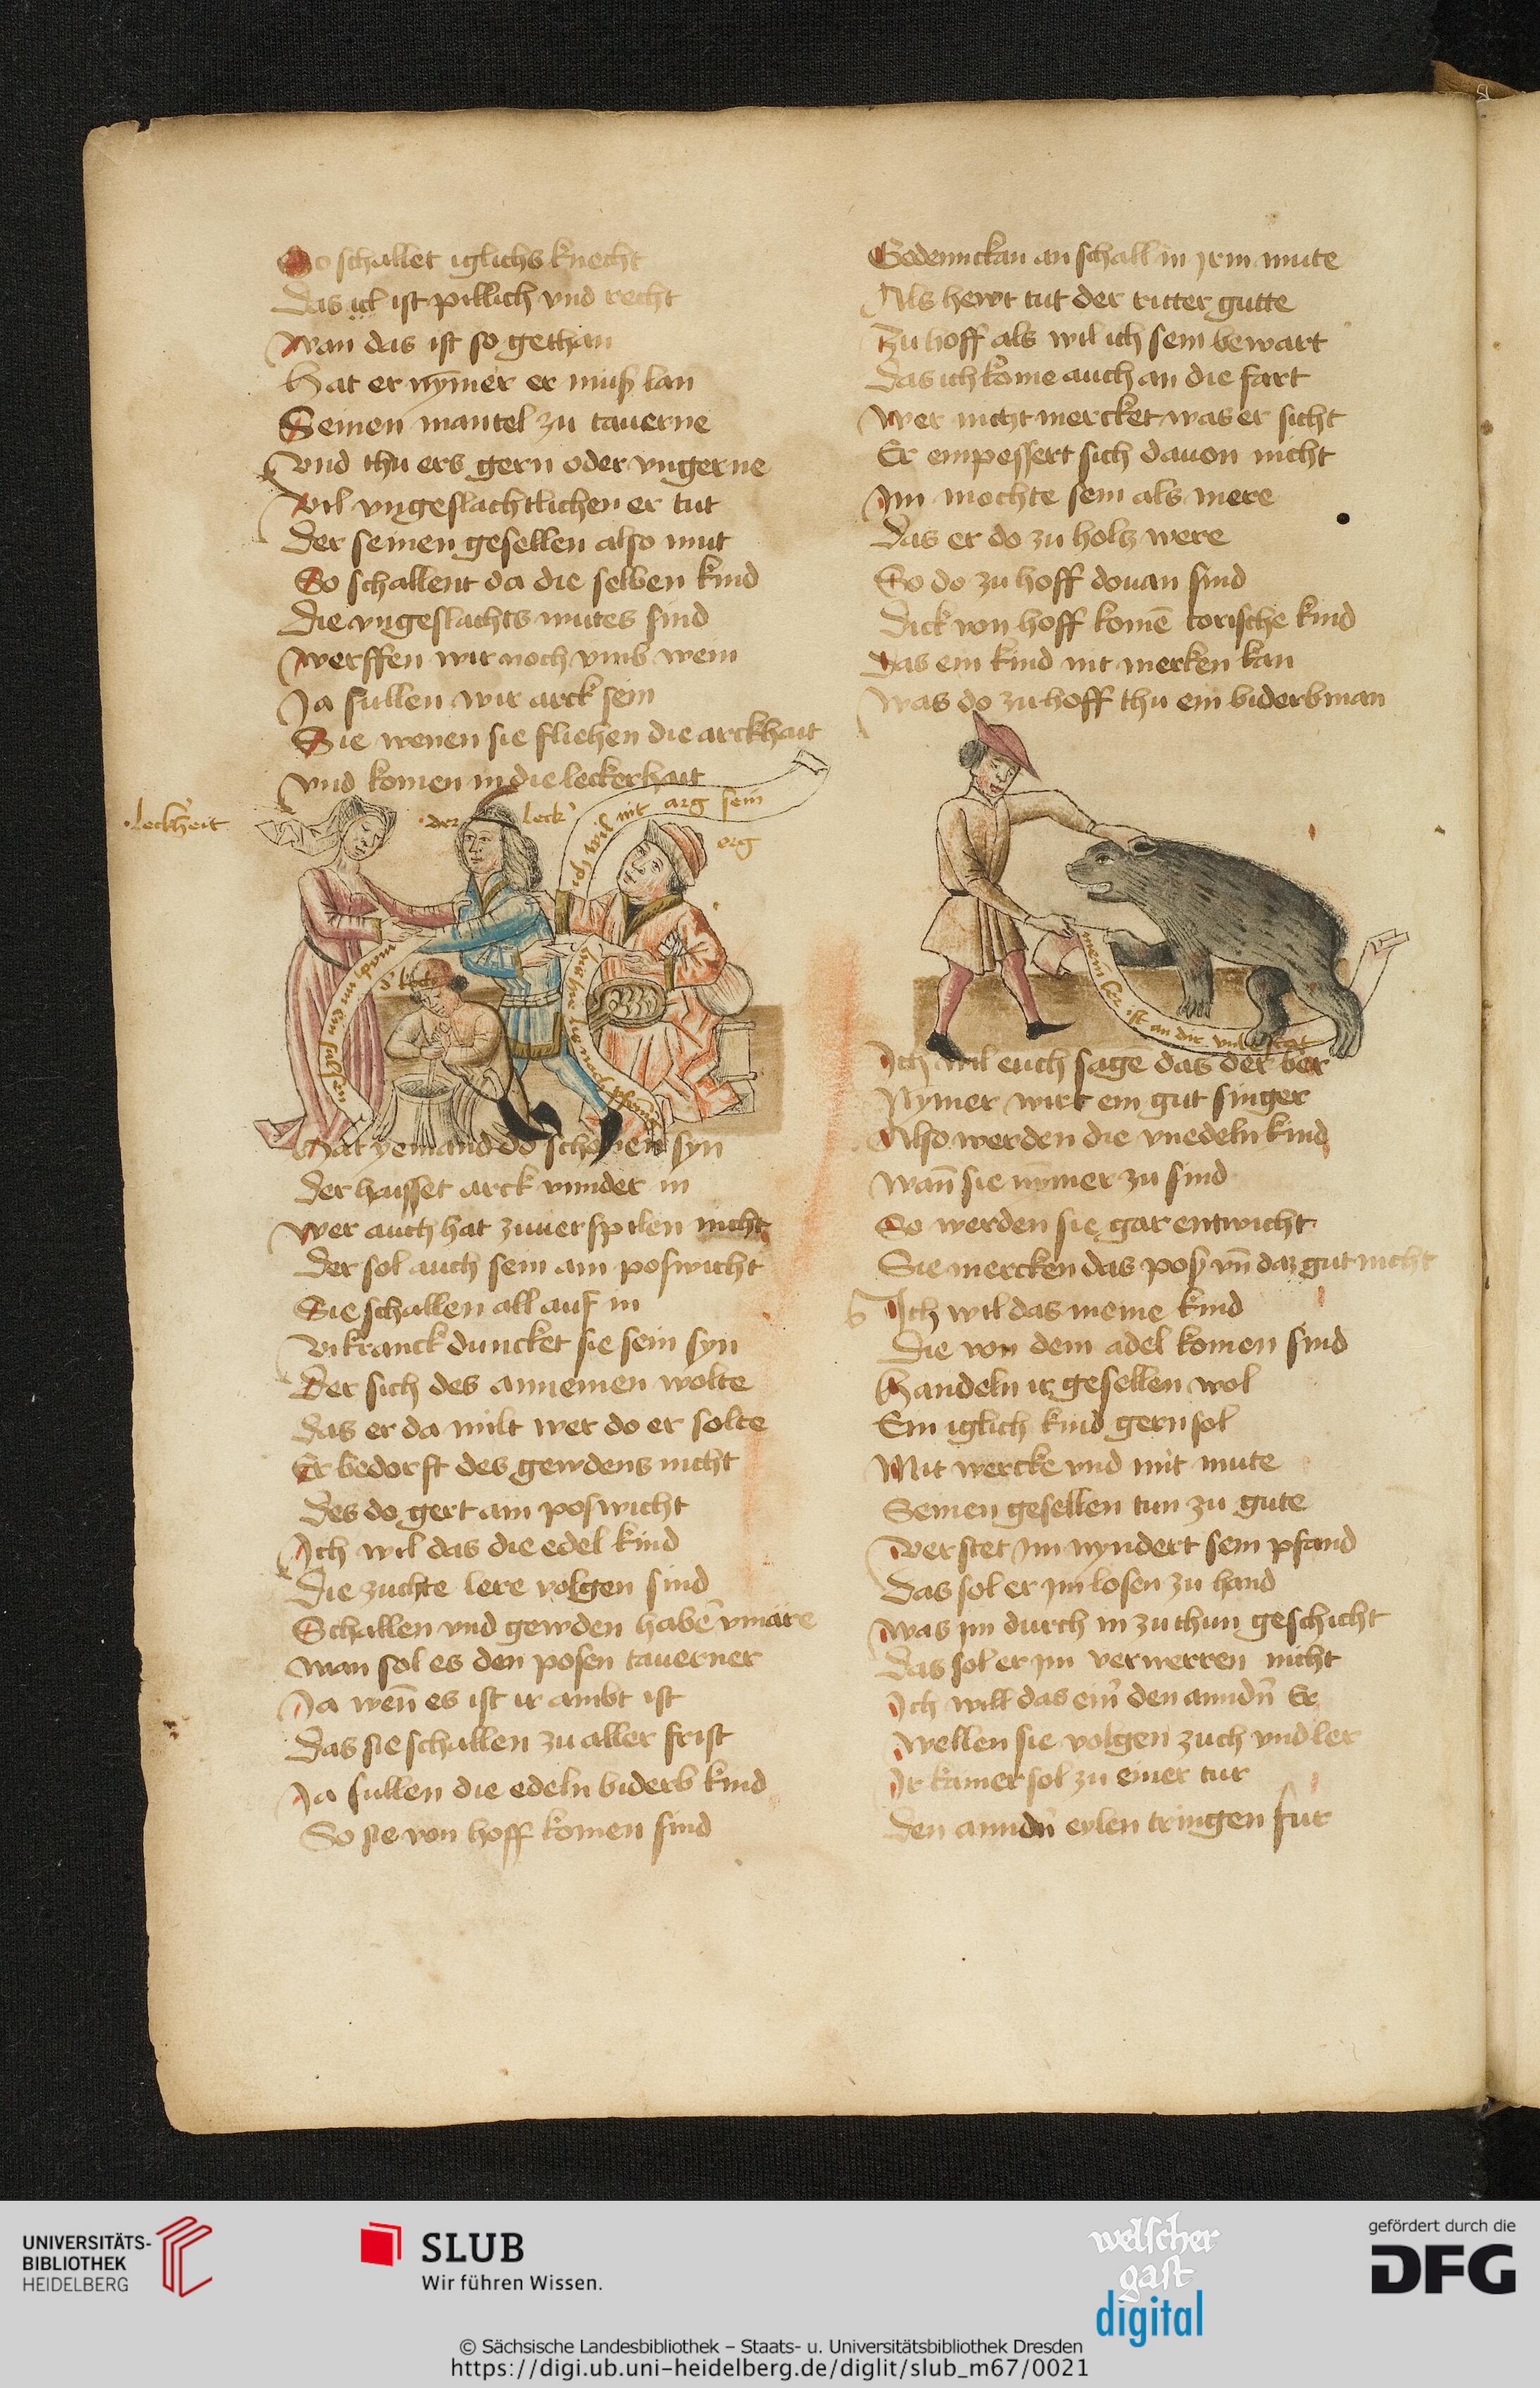 So schallet iglichs knecht
Das ist pillich vnd recht
Wan das ist so gethan
Hat er nymer er muß lan
Seinen mantel zu tauerne
Vnd thu ers gern oder vngerne
Vil vngeslachtlichen er tut
Der seinen gesellen also mut
So schallent da die selben kind
Die vngeslachts mutes sind
Werffen wir noch vmb wein
Ja sullen wir arck sein
Sie wenen sie fliehen die arckhait
Vnd komen in die leckerhait
leckheit
der leck
ich wil nit arg sein
erg
Hat yemand do schonen syn
Der hausset arck vnnder in
Wer auch hat zuuerspilen nicht
Der sol auch sein ain poswicht
Sie schallen all auf in
Vikranck duncket sie sein syn
Der sich des annemen wolte
Das er da milt wer do er solte
Er bedorft des gewdens nicht
Des do gert ain poswicht
Ich wil das die edel kind
Die zuchte lere volgen sind
Schallen vnd gewden habē vmäre
Man sol es den posen tauerner
Ja weñ es ist ir ambt ist
Das sie schallen zu aller frist
Ja sullen die edeln biderb kind
So sie von hoff komen sind
Gedennckan an schall in jrm mute
Als hewt tut der ritter gutte
Zu hoff als wil ich sein bewart
Das ich kome auch an die fart
Wer nicht mercket was er sicht
Er enpessert sich dauon nicht
Im mochte sein als mere
Das er do zu holtz were
So do zu hoff douan sind
Dick von hoff komē torische kind
Das ein kind nit merken kan
Was do zu hoff thu ein biderbman
mein ist an dir
Ich wil euch sagē das der ber
Nymer wirt ein gut singer
Also werden die vnedeln kind
Wañ sie nymer zu sind
So werden sie gar entwicht
Sie mercken das poß vñ daz gut nicht
Ich wil das meine kind
Die von dem adel komen sind
Handeln ir gesellen wol
Ein iglich kind gern sol
Mit wercke vnd mit mute
Seinen gesellen tun zu gute
Verstet im nyndert sein pfand
Das sol er im losen zu hand
Was im durch in zu thun geschicht
Das sol er im verwerren nicht
Ich will das ein den anndn Er
Wellen sie volgen zuch vnd ler
Ir kamer sol zu einer tur
Den anndn eylen tringen fur
UNIVERSITÄTS-
BIBLIOTHEK
HEIDELBERG
SLUB
Wir führen Wissen.
welscher
gast
digital
gefördert durch die
DFG
© Sächsische Landesbibliothek – Staats- u. Universitätsbibliothek Dresden
https://digi.ub.uni-heidelberg.de/diglit/slub_m67/0021